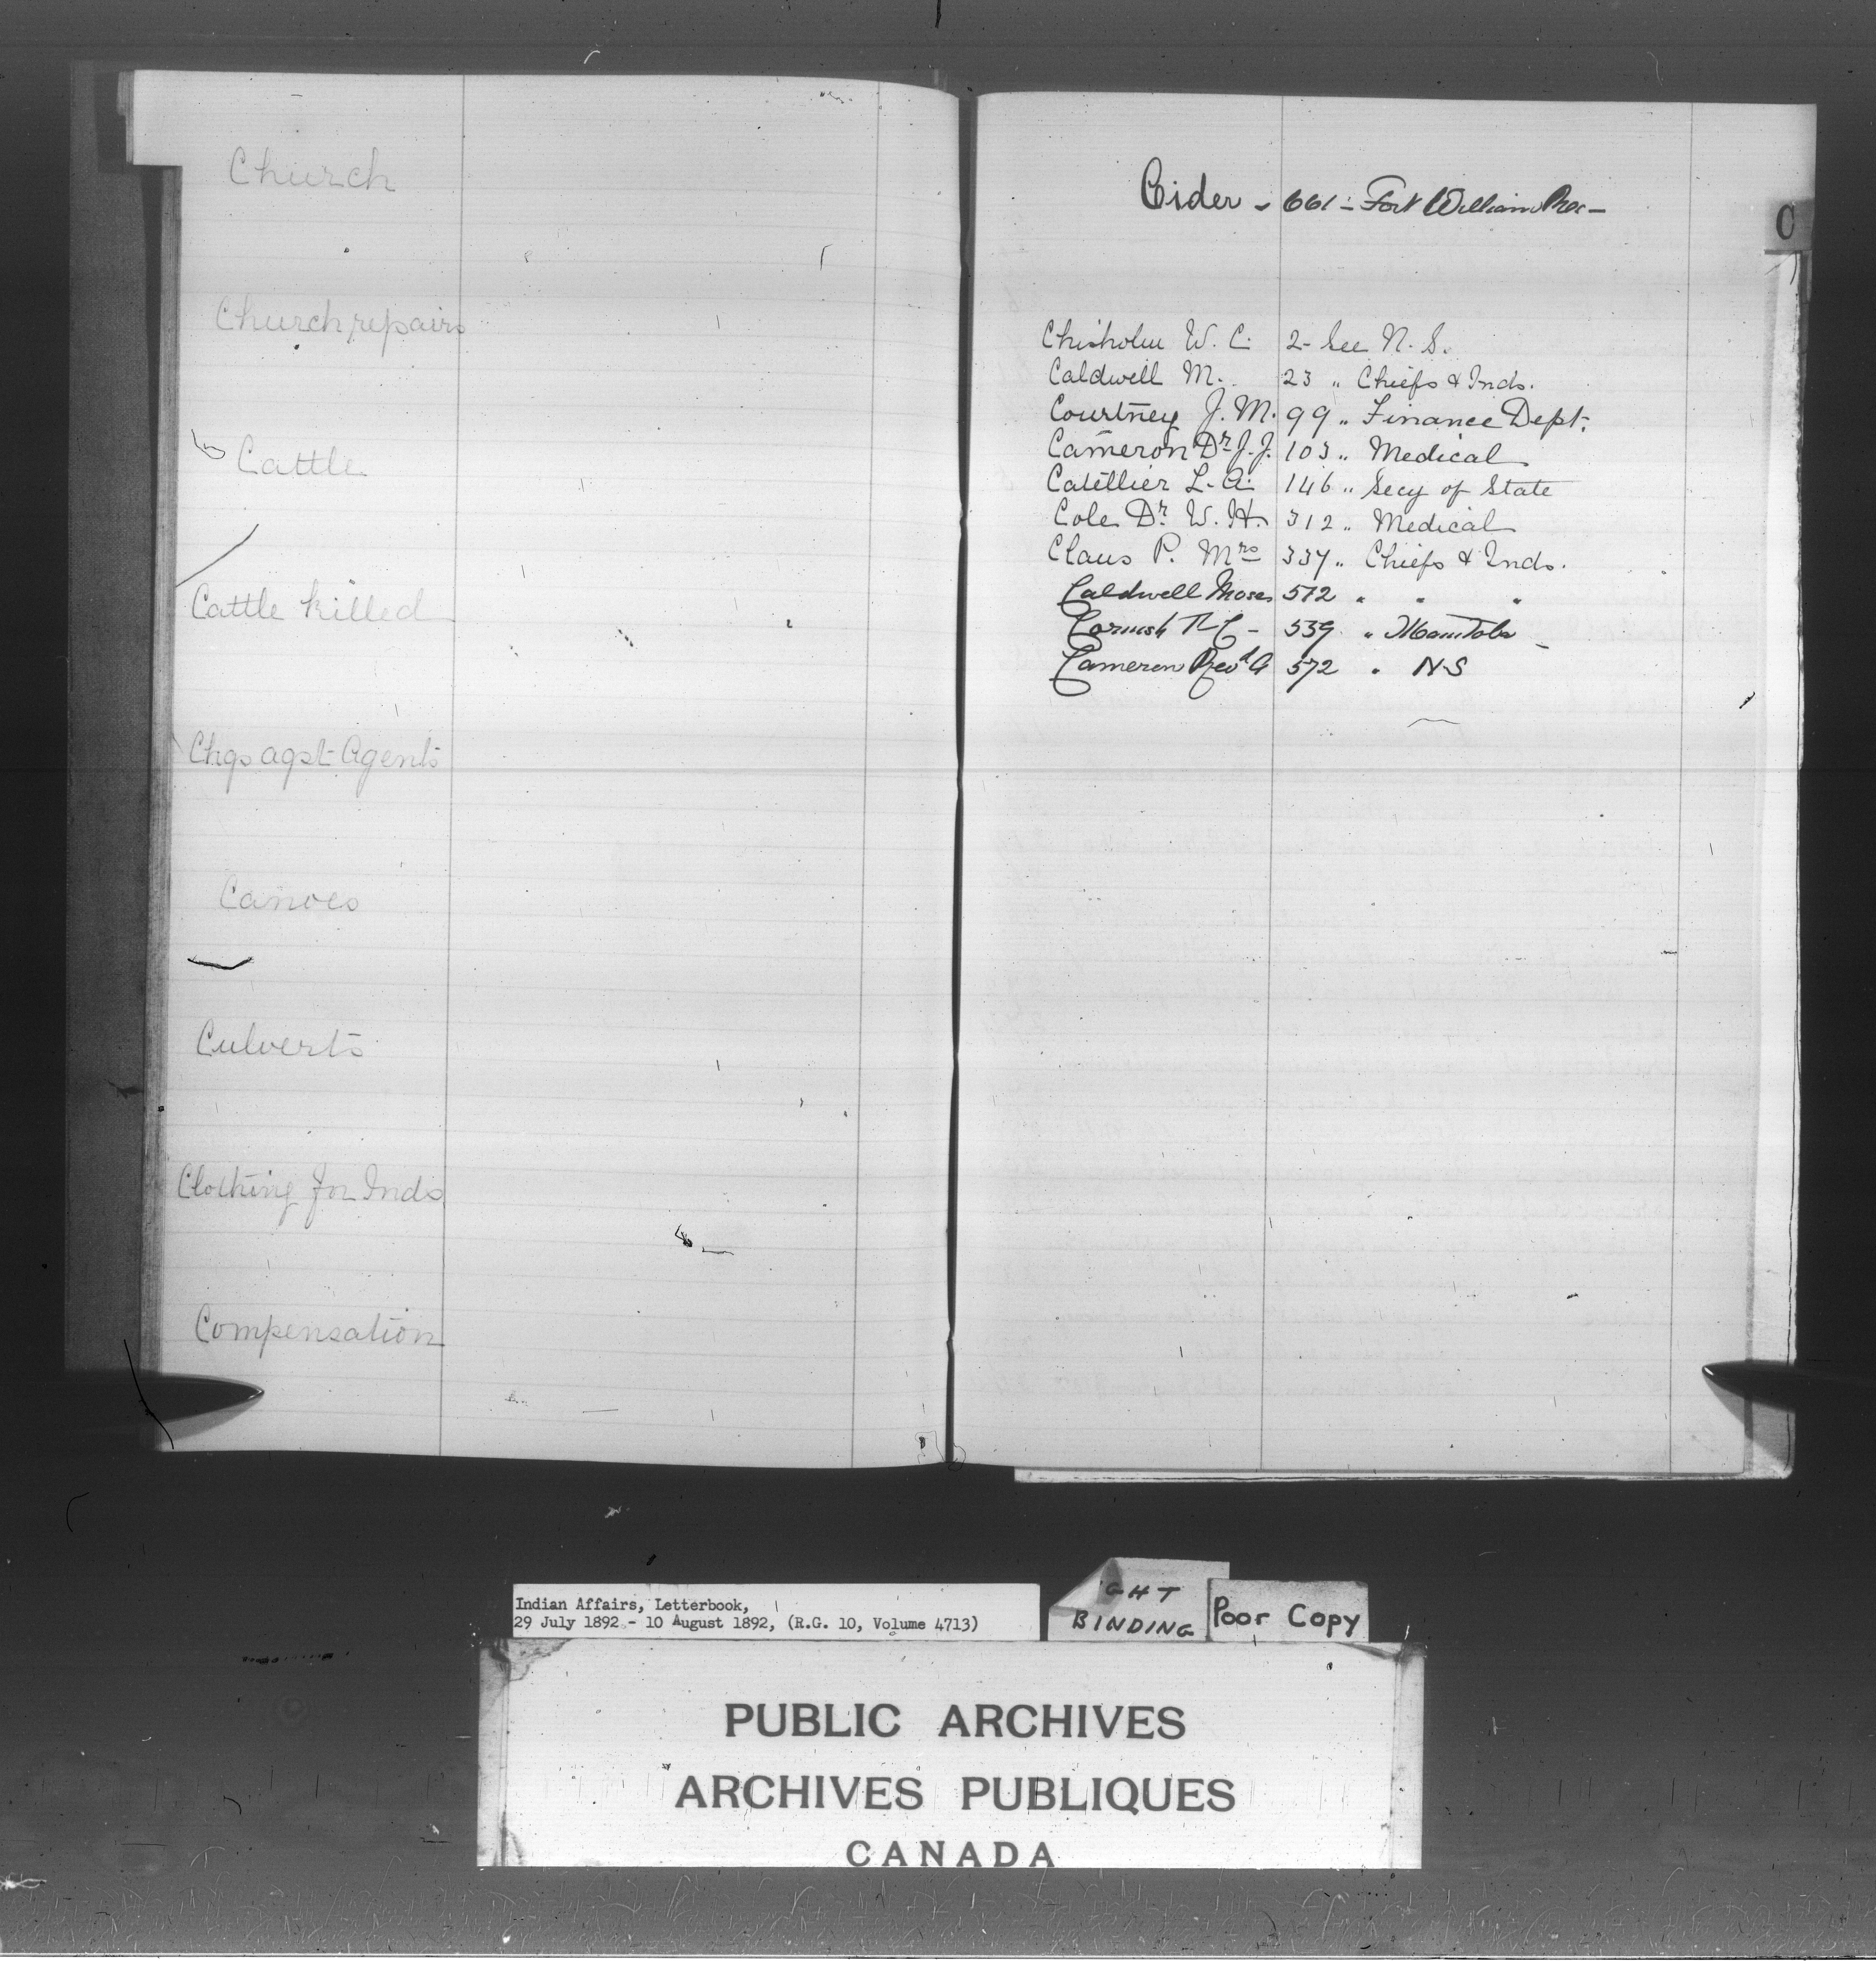 Church
Church repairs
Cattle
Cattle killed
Chgs agst Agents
Canoes
Culverts
Clothing for Inds
Compensation
Cider - 661 - Fort William Res -
C
Chisholm W. C. 2 - See N. S.
Caldwell M. 23 " Chiefs & Inds.
Courtney J. M. 99 " Finance Dept.
Cameron Dr J. J. 103 " Medical
Catellier L. A. 146 " Secy of State
Cole Dr W. H. 312 " Medical
Claus P. Mrs 337 " Chiefs & Inds.
Caldwell Moses 512 " " "
Cornish 539 " Manitoba -
Cameron Revd A 572 " N-S
Indian Affairs, Letterbook,
29 July 1892 - 10 August 1892, (R.G. 10, Volume 4713)
GHT
BINDING
Poor Copy
PUBLIC ARCHIVES
ARCHIVES PUBLIQUES
CANADA